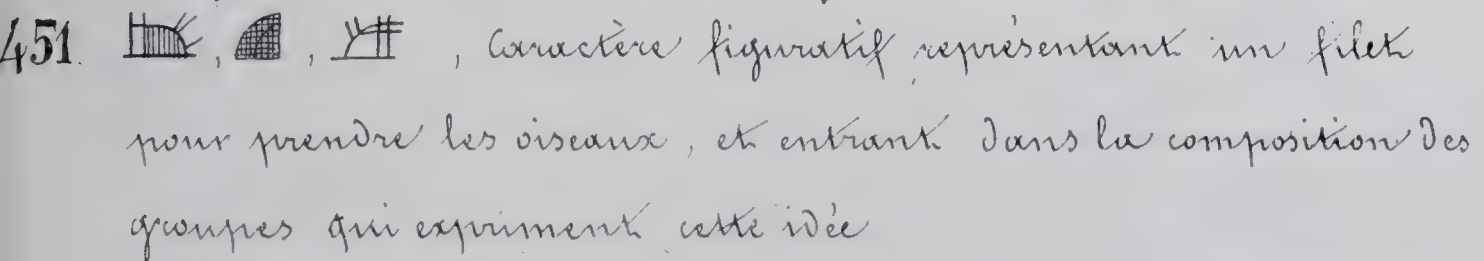 451. , , , Caractère figuratif représentant un filet
pour prendre les oiseaux, et entrant dans la composition des
groupes qui expriment cette idée